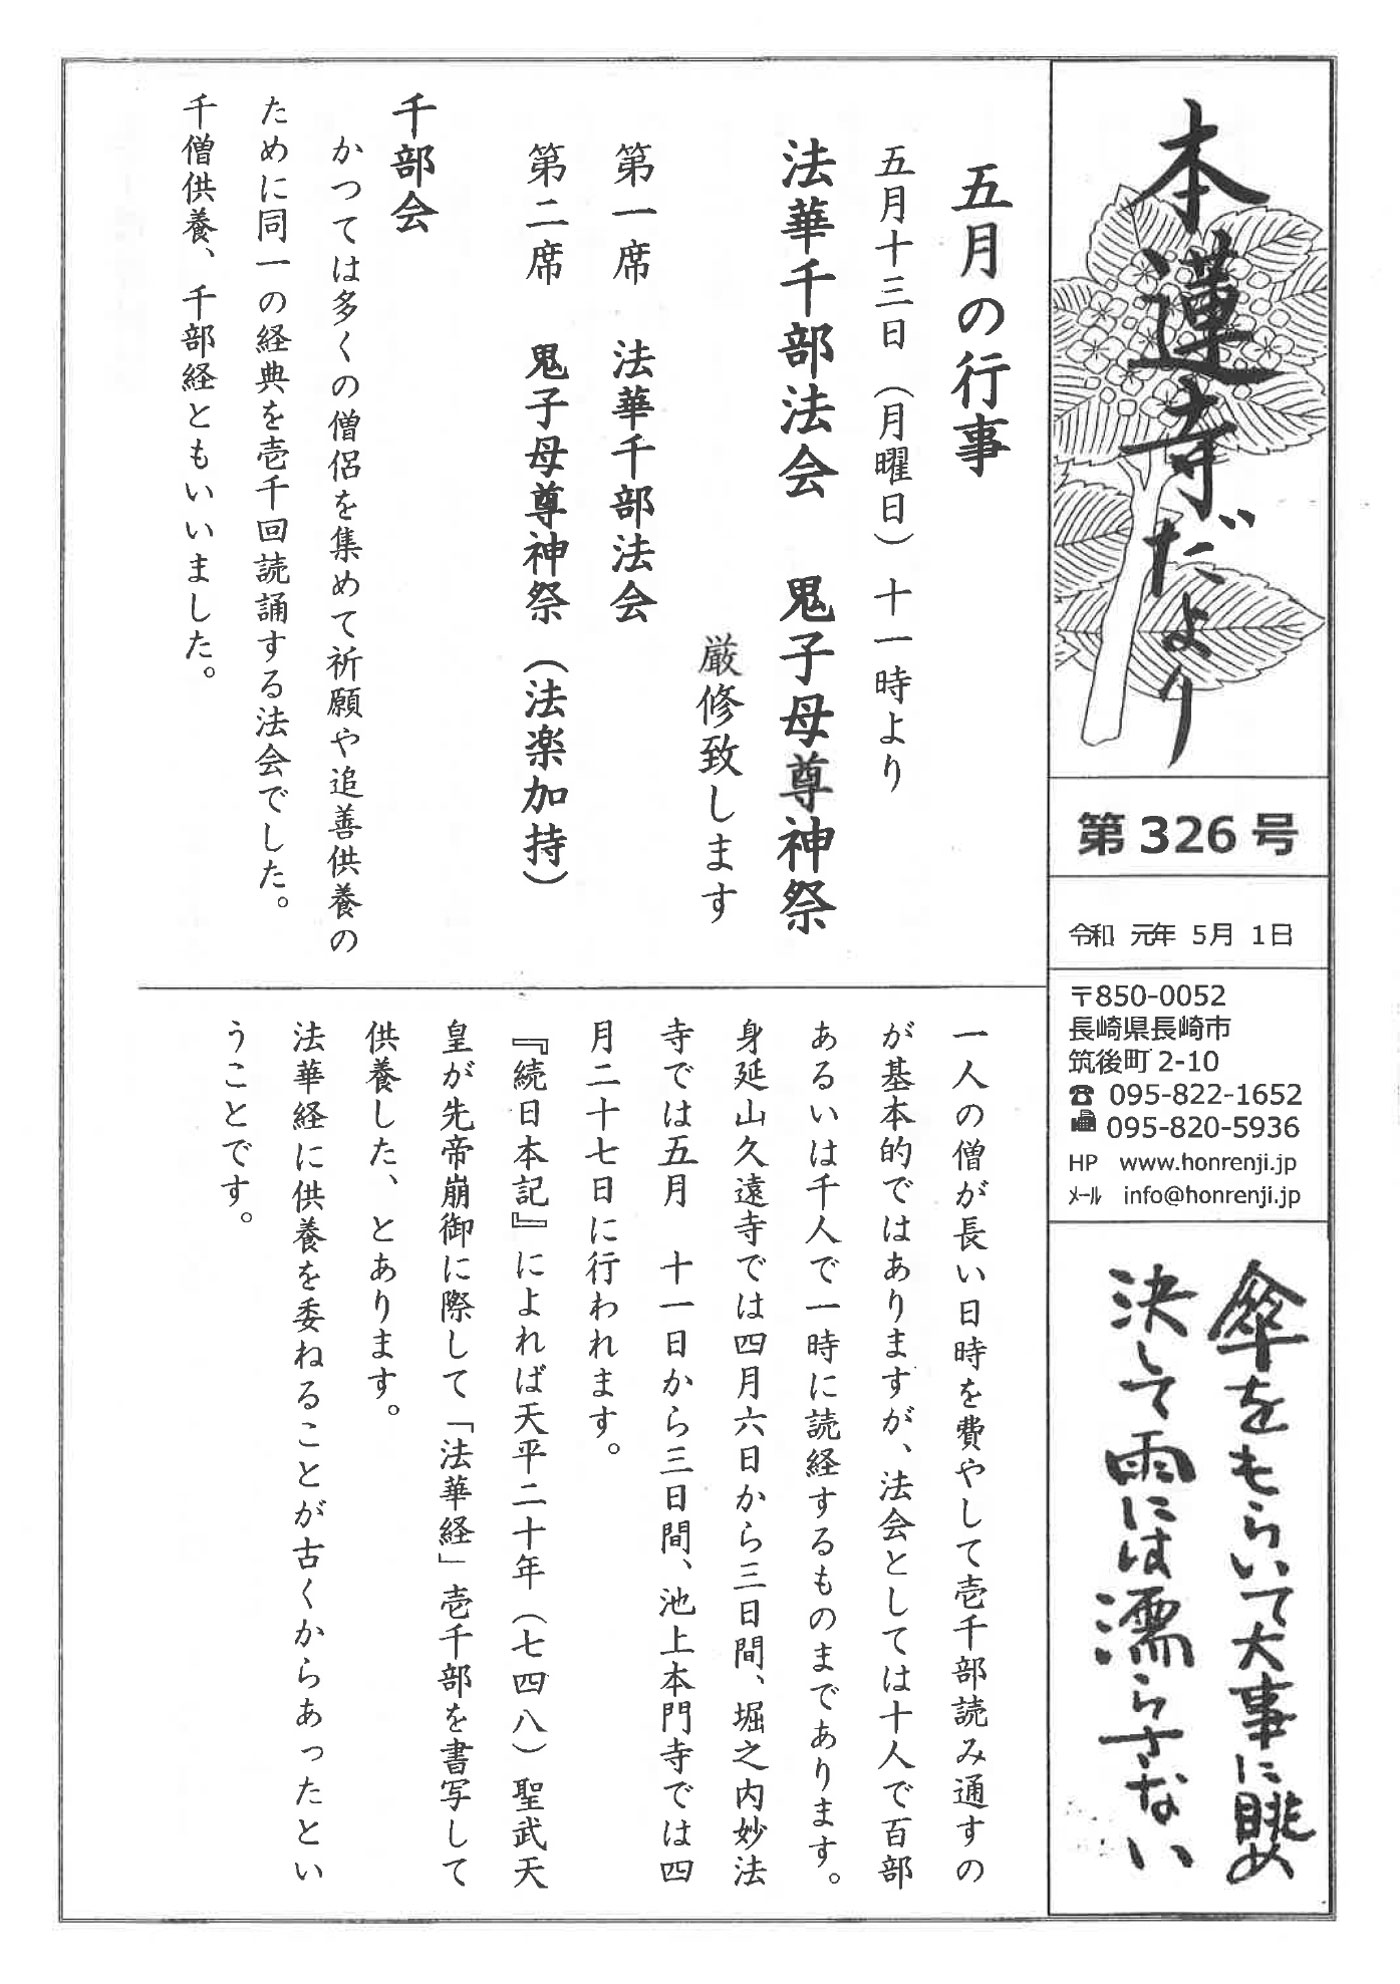 本蓮寺だより
第326号
令和 元年 5月 1日
〒850-0052
長崎県長崎市
筑後町2-10
☎ 095-822-1652
📠 095-820-5936
HP www.honrenji.jp
メール info@honrenji.jp
傘をもらいて大事に眺め
決して雨には濡らさない
五月の行事
五月十三日（月曜日）十一時より
法華千部法会 鬼子母尊神祭
厳修致します
第一席 法華千部法会
第二席 鬼子母尊神祭（法楽加持）
千部会
かつては多くの僧侶を集めて祈願や追善供養の
ために同一の経典を壱千回読誦する法会でした。
千僧供養、千部経ともいいました。
一人の僧が長い日時を費やして壱千部読み通すの
が基本的ではありますが、法会としては十人で百部
あるいは千人で一時に読経するものまであります。
身延山久遠寺では四月六日から三日間、堀之内妙法
寺では五月 十一日から三日間、池上本門寺では四
月二十七日に行われます。
『続日本記』によれば天平二十年（七四八）聖武天
皇が先帝崩御に際して「法華経」壱千部を書写して
供養した、とあります。
法華経に供養を委ねることが古くからあったとい
うことです。